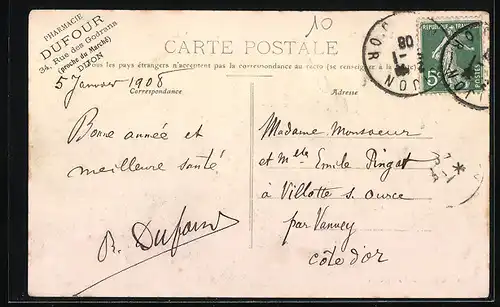 PHARMACIE
DUFOUR
34, Rue des Godrans
(proche du Marché)
DIJON
10
CARTE POSTALE
Tous les pays étrangers n'acceptent pas la correspondance au recto (se renseigner à la
5 Janvier 1908
Correspondance
Adresse
Bonne année et
meilleure santé
R. Dufour
Madame Monsieur
et Mlle Emile Pingat
à Villotte s. Ource
par Vanvey
Côte d'or
5c
POSTES
DIJON
COTE D'OR
08